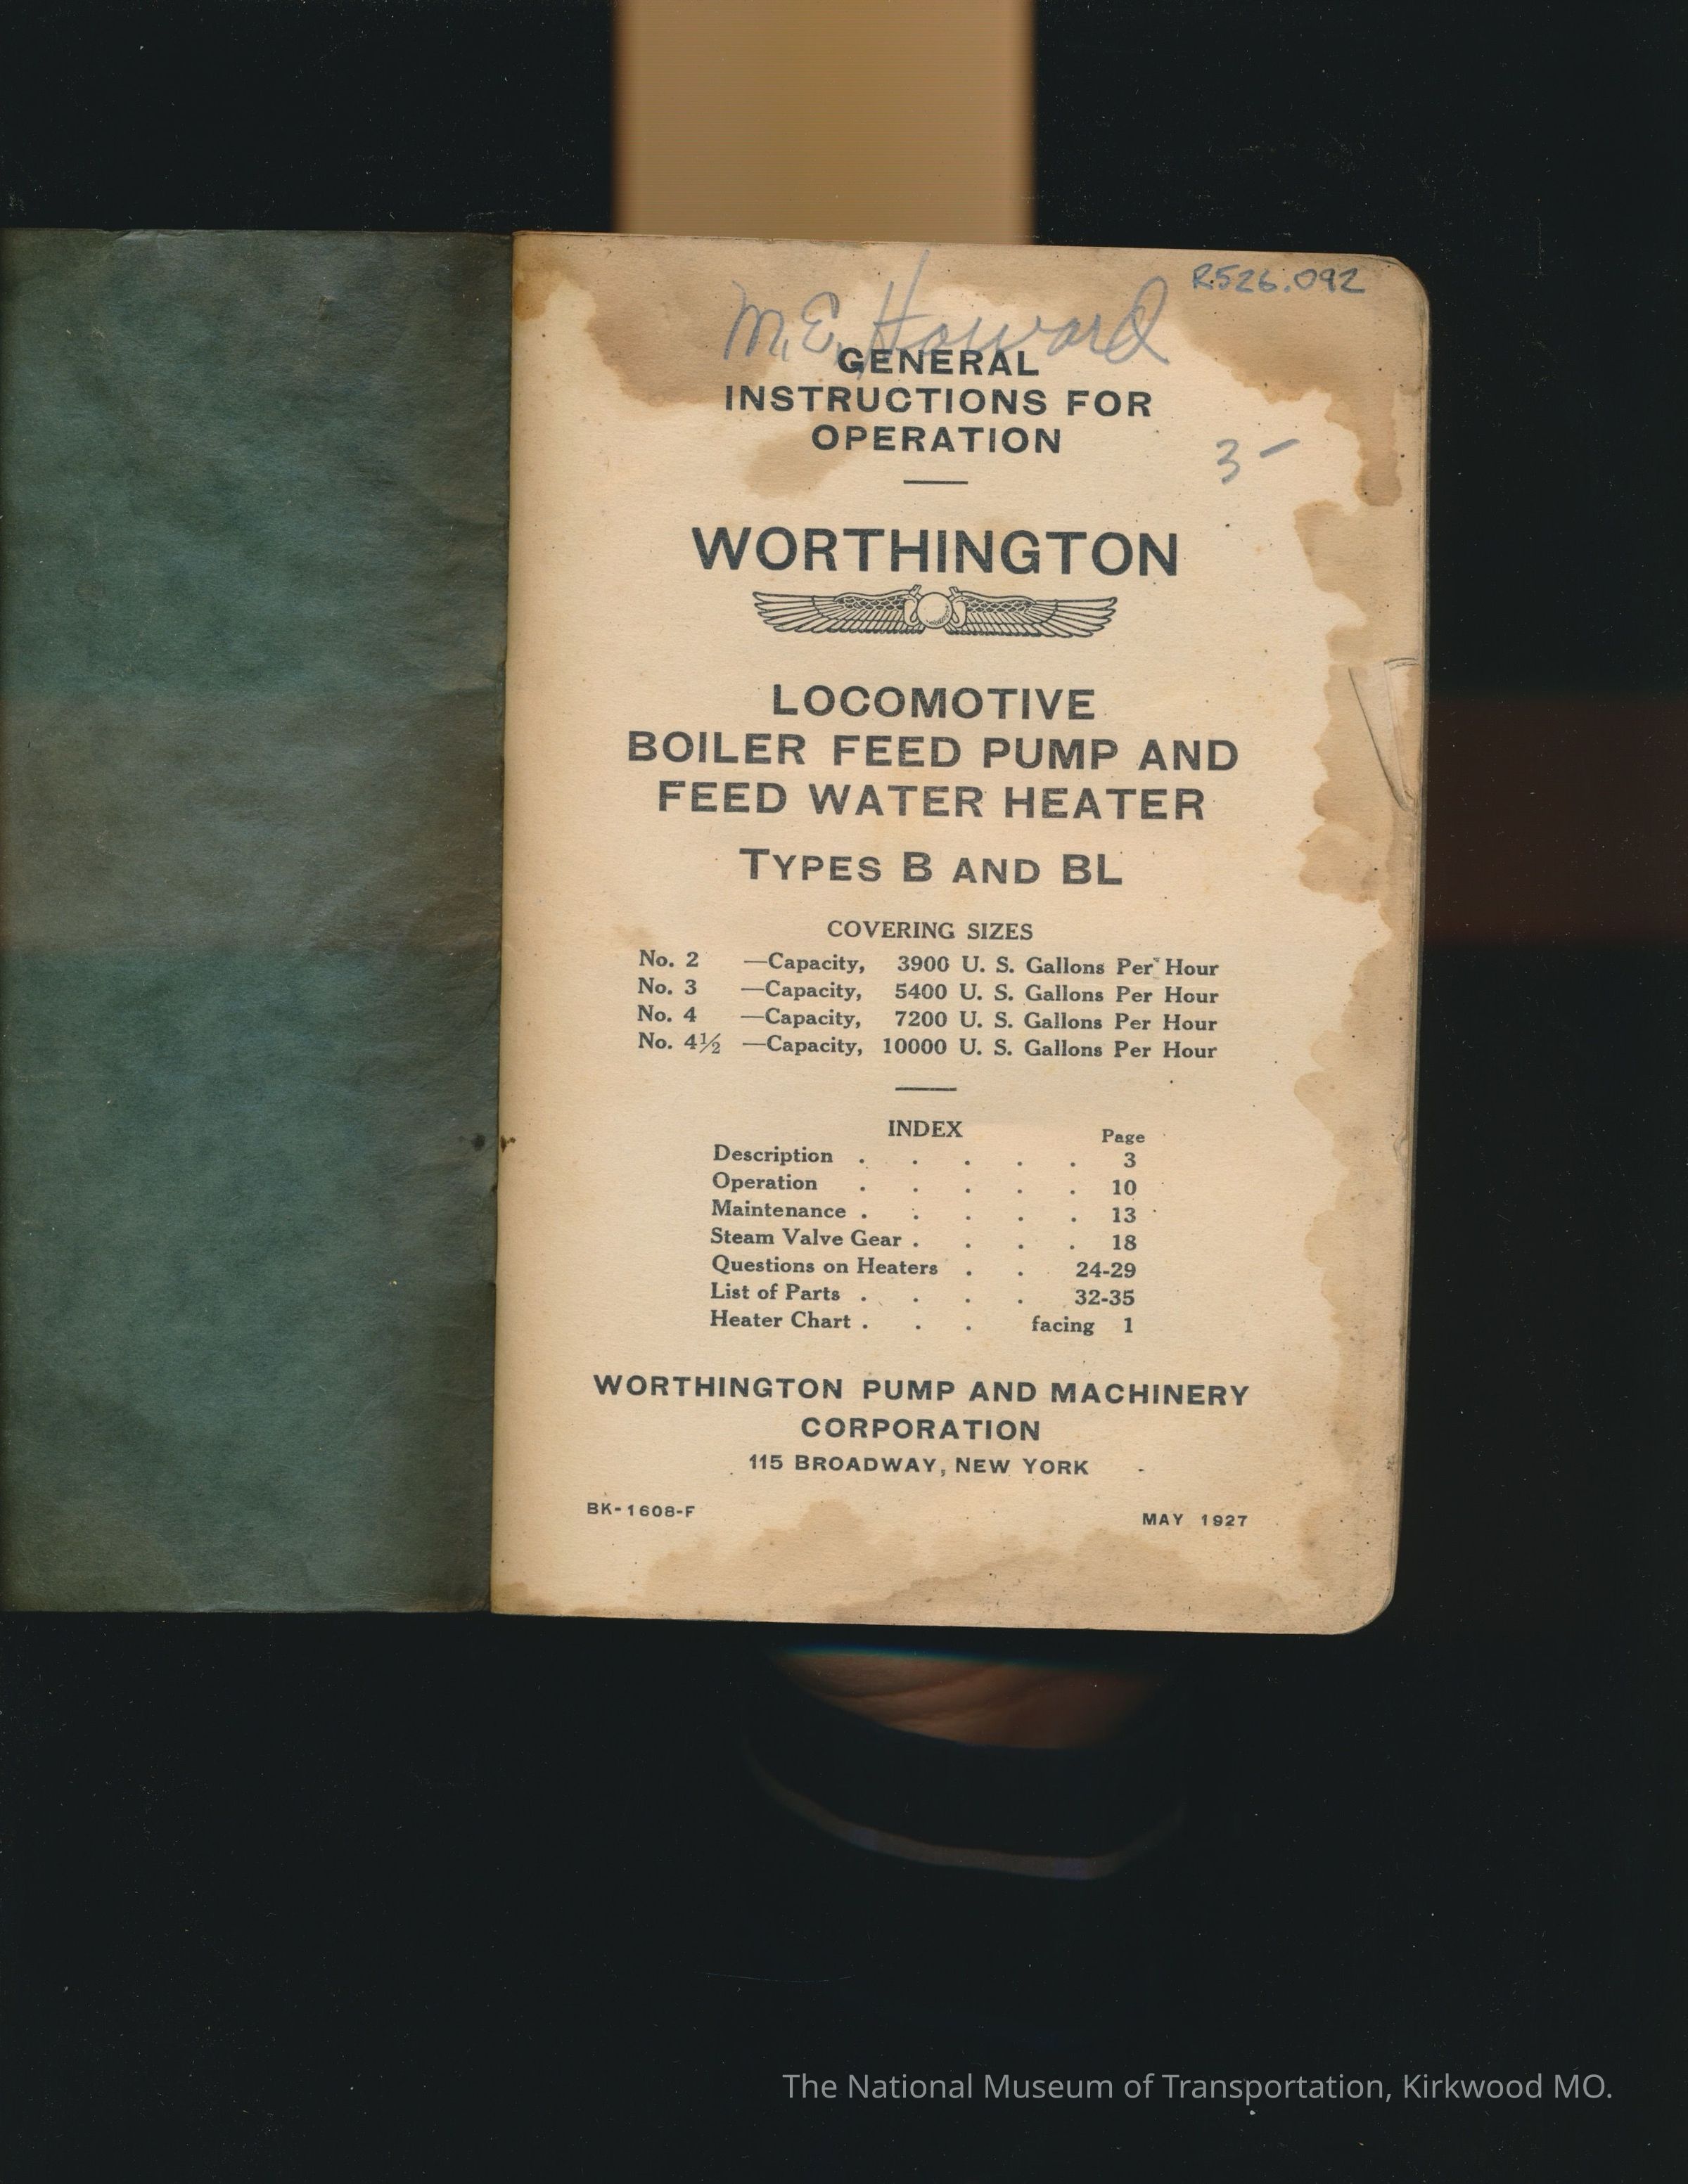 R526.092
M.E. Howard
GENERAL
INSTRUCTIONS FOR
OPERATION
3-
WORTHINGTON
LOCOMOTIVE
BOILER FEED PUMP AND
FEED WATER HEATER
TYPES B AND BL
COVERING SIZES
No. 2 —Capacity, 3900 U. S. Gallons Per Hour
No. 3 —Capacity, 5400 U. S. Gallons Per Hour
No. 4 —Capacity, 7200 U. S. Gallons Per Hour
No. 4½ —Capacity, 10000 U. S. Gallons Per Hour
INDEX
Page
Description . . . . . 3
Operation . . . . . 10
Maintenance . . . . . 13
Steam Valve Gear . . . . 18
Questions on Heaters . . 24-29
List of Parts . . . . 32-35
Heater Chart . . . facing 1
WORTHINGTON PUMP AND MACHINERY
CORPORATION
115 BROADWAY, NEW YORK
BK-1608-F MAY 1927
The National Museum of Transportation, Kirkwood MO.